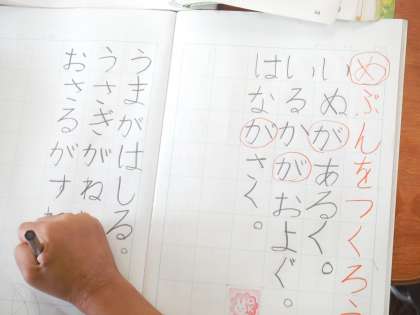 めぶんをつくろう
いぬがあるく。
いるかがおよぐ。
はながさく。
うまがはしる。
うさぎがね
おさるがす